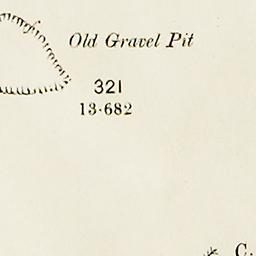 Old Gravel Pit
321
13·682
C.